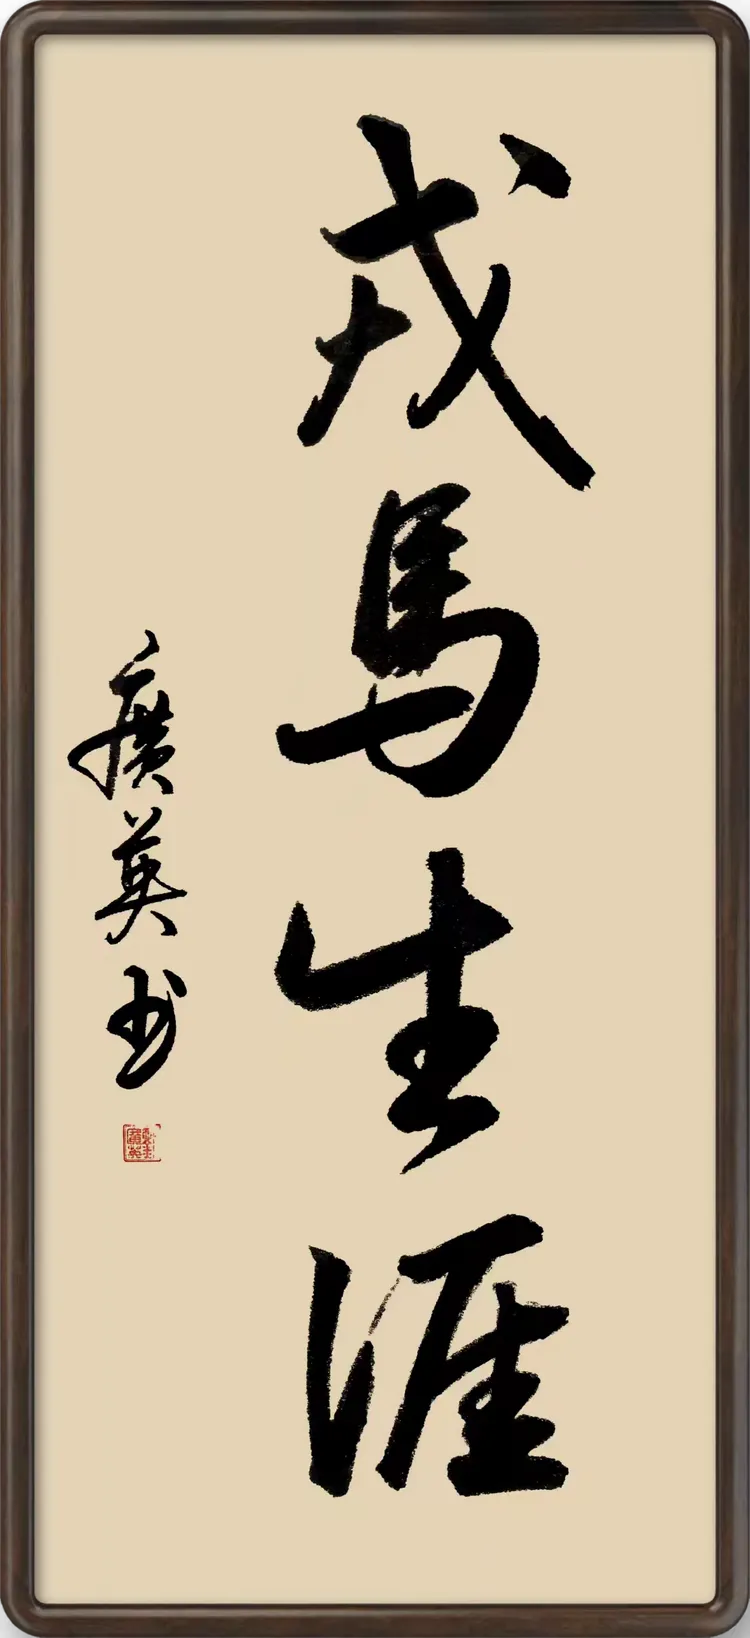 戎馬生涯
廣英书